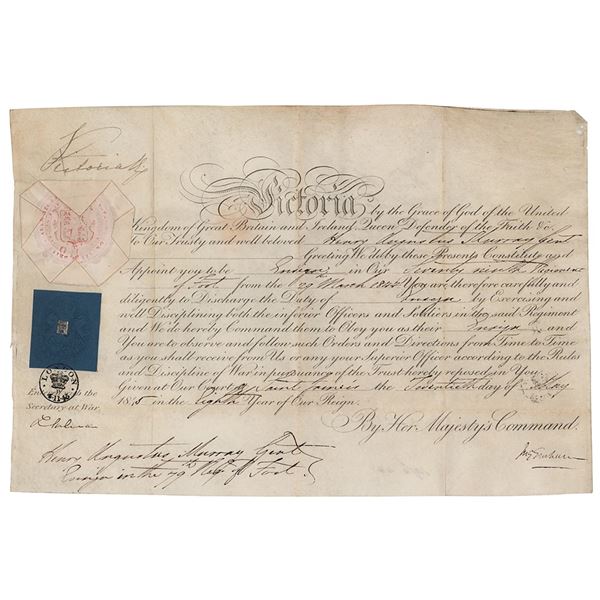 Victoria R
Victoria by the Grace of God of the United
Kingdom of Great Britain and Ireland, Queen, Defender of the Faith &c.
To Our Trusty and well beloved Henry Augustus Murray Gent
Greeting We do by these Presents Constitute and
Appoint you to be Ensign in Our Seventy ninth Regiment
of Foot from the 29th March 1845 You are therefore carefully and
diligently to Discharge the Duty of Ensign by Exercising and
well Disciplining both the inferior Officers and Soldiers in the said Regiment
and We do hereby Command them to Obey you as their Ensign and
You are to observe and follow such Orders and Directions from Time to Time
as you shall receive from Us or any your Superior Officer according to the Rules
and Discipline of War in pursuance of the Trust hereby reposed in You
Given at Our Court of Saint James's the Twentieth day of May
1845 in the Eighth Year of Our Reign.
By Her Majesty's Command.
LONDON
the
Secretary at War.
Henry Augustus Murray Gent
Ensign in the 79th Regt of Foot